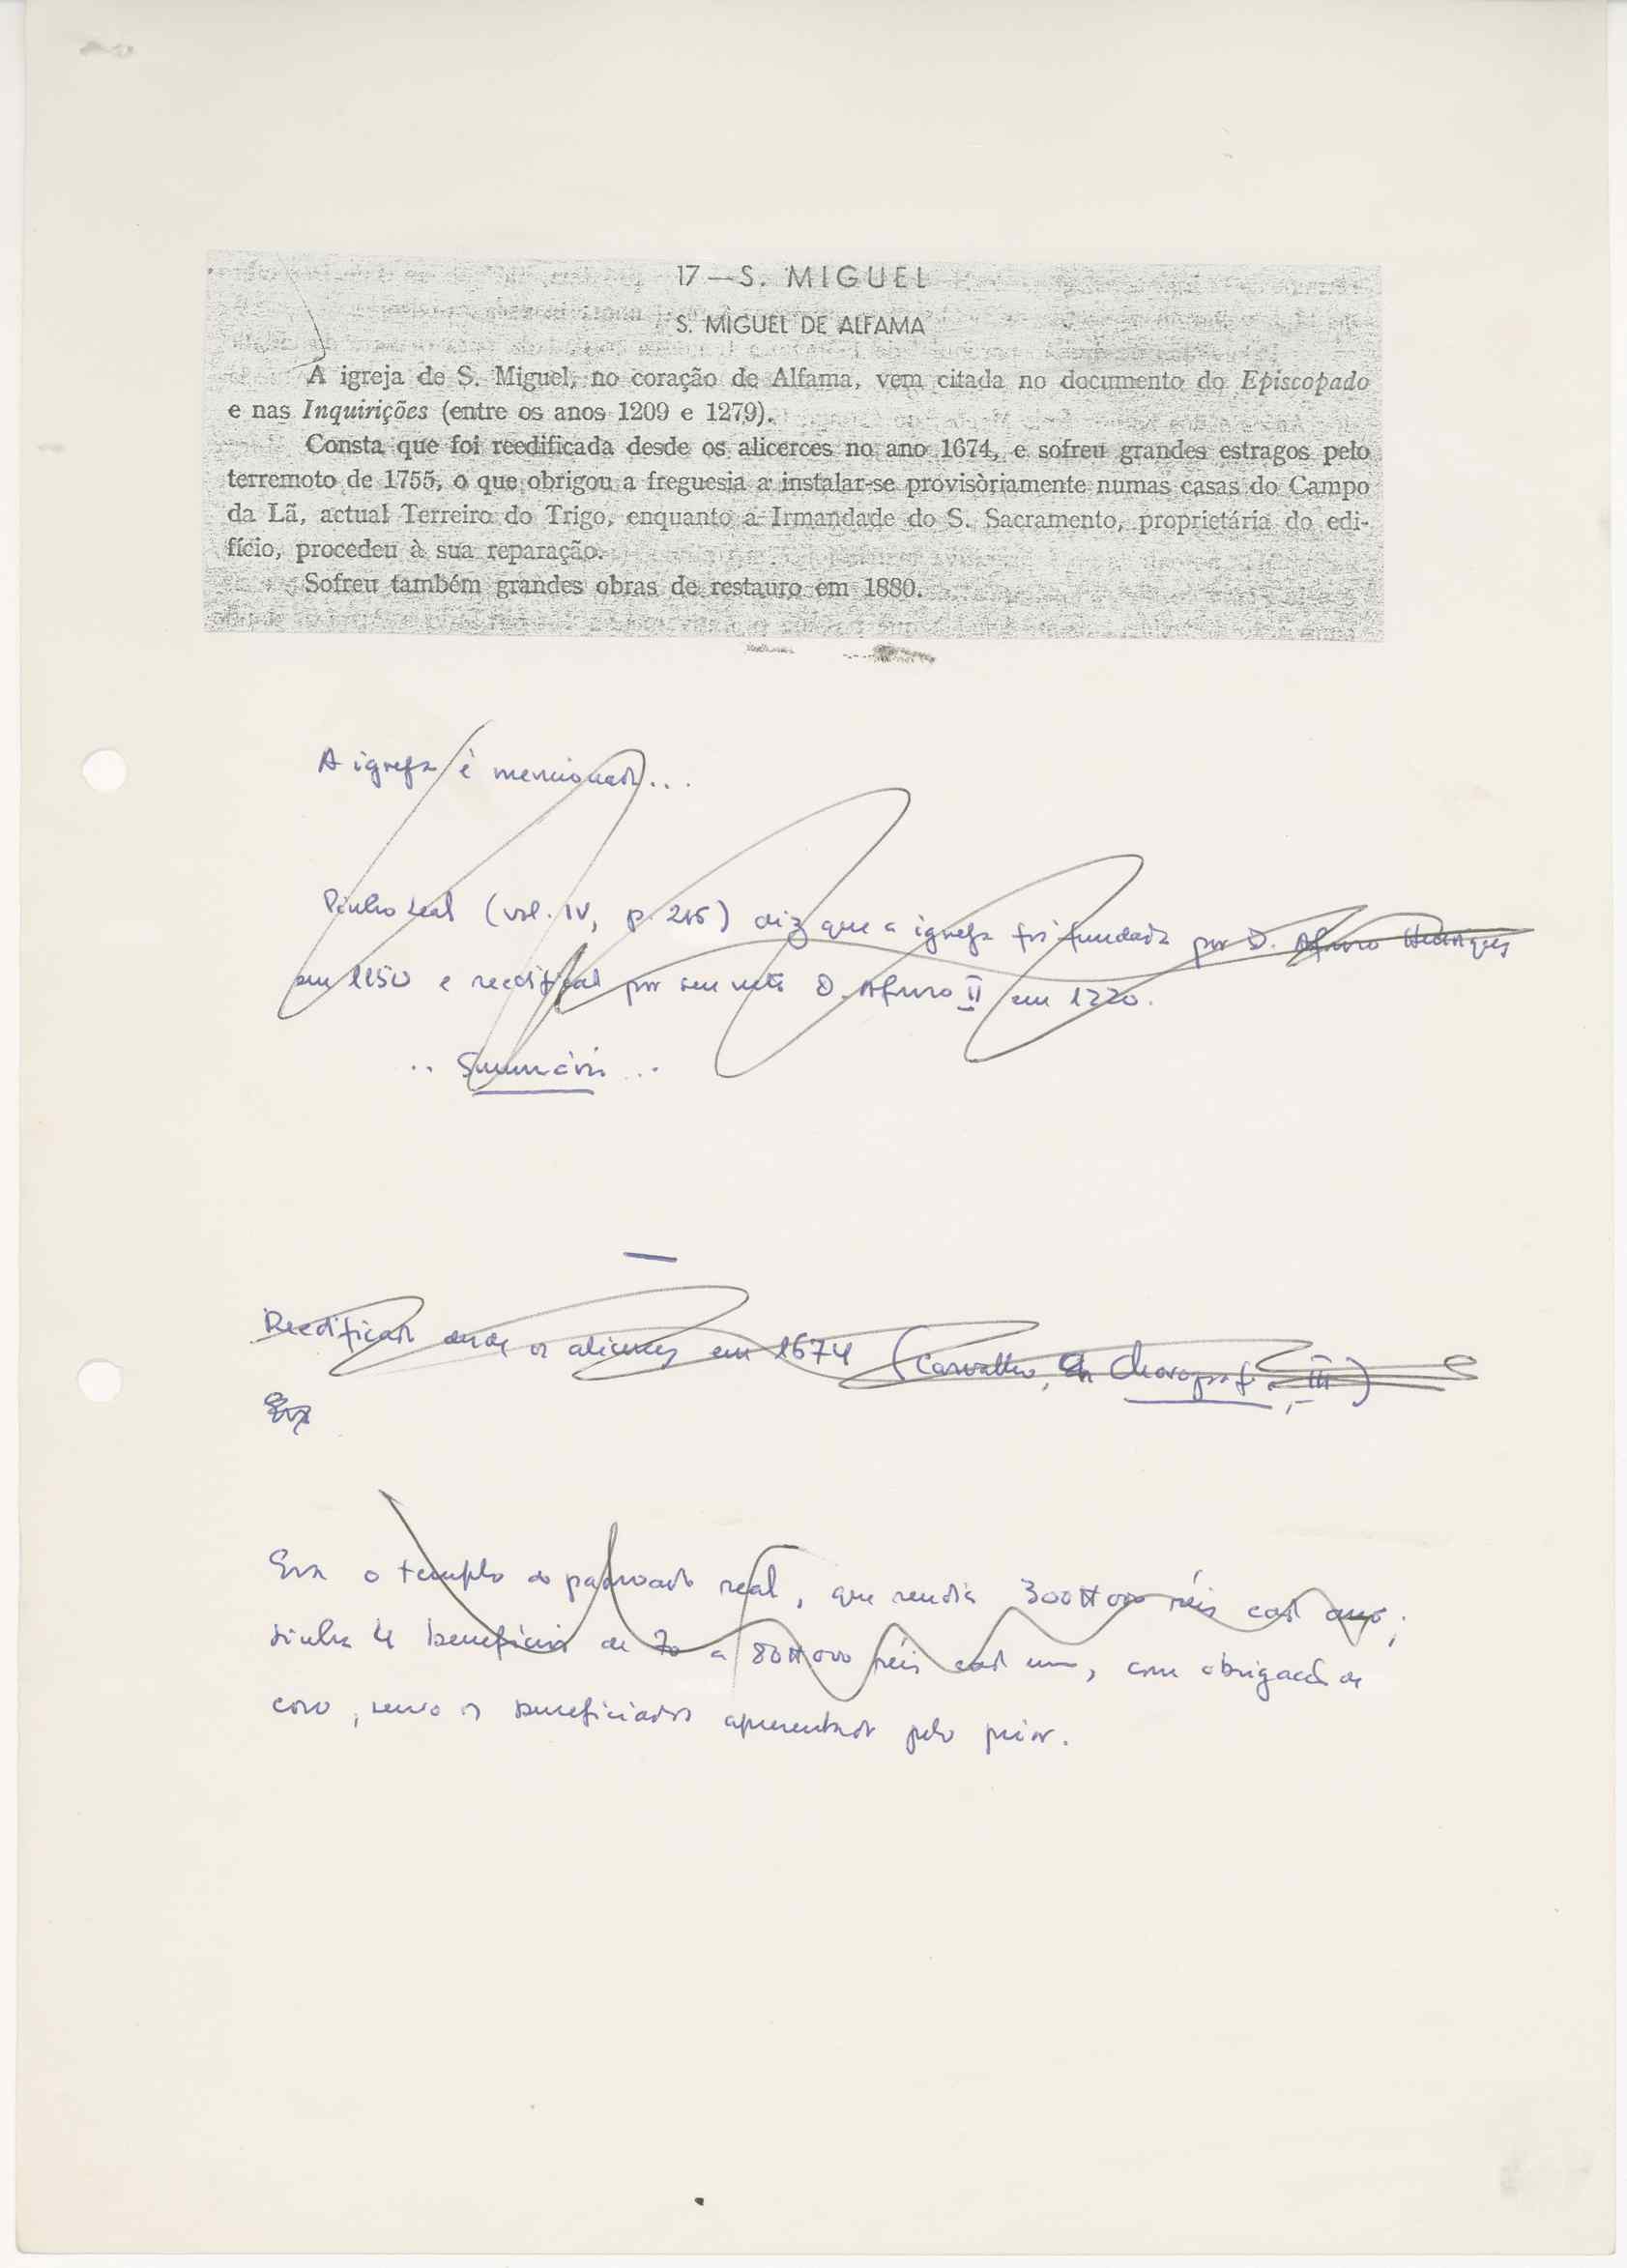 17 — S. MIGUEL
S. MIGUEL DE ALFAMA
A igreja de S. Miguel, no coração de Alfama, vem citada no documento do Episcopado
e nas Inquirições (entre os anos 1209 e 1279).
Consta que foi reedificada desde os alicerces no ano 1674, e sofreu grandes estragos pelo
terremoto de 1755, o que obrigou a freguesia a instalar-se provisòriamente numas casas do Campo
da Lã, actual Terreiro do Trigo, enquanto a Irmandade do S. Sacramento, proprietária do edi-
fício, procedeu à sua reparação.
Sofreu também grandes obras de restauro em 1880.
A igreja é mencionada...
Pinho Leal (vol. IV, p. ) diz que a igreja foi fundada por D. Afonso Henriques
em 1150 e reedificada por seu neto D. Afonso II em 1220.
.. Summário ...
Reedificada desde os alicerces em 1674 (Carvalho, Chorografia, III)
Era o templo do padroado real, que rendia 300#000 réis cada ano;
tinha 4 benefícios de 70 a 80#000 réis cada um, com obrigação de
coro, sendo os beneficiados apresentados pelo prior.